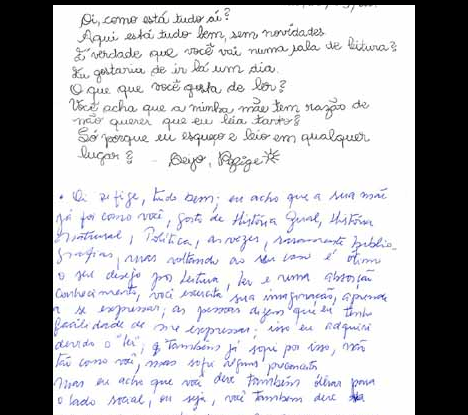 Oi, como está tudo aí?
Aqui está tudo bem, sem novidades
É verdade que você vai numa sala de leitura?
Eu gostaria de ir lá um dia.
O que que você gosta de ler?
Você acha que a minha mãe tem razão de
não querer que eu leia tanto?
Só porque eu esqueço e leio em qualquer
lugar?
Beijo,
• Oi, tudo bem; eu acho que a sua mãe
já foi como você, gosto de História Geral, História
Natural, Política, as vezes, raramente biblio-
grafias, mas voltando ao seu caso é ótimo
o seu desejo por leitura, ler é uma absorção
conhecimento, você exercita sua imaginação, aprende
a se expressar; as pessoas dizem que eu tenho
facilidade de me expressar; isso eu adquiri
devido o "ler"; também já sofri por isso, não
tão como você, mas sofri alguns preconceito
mas eu acho que você deve também olhar para
o lado social, ou seja, você também deve